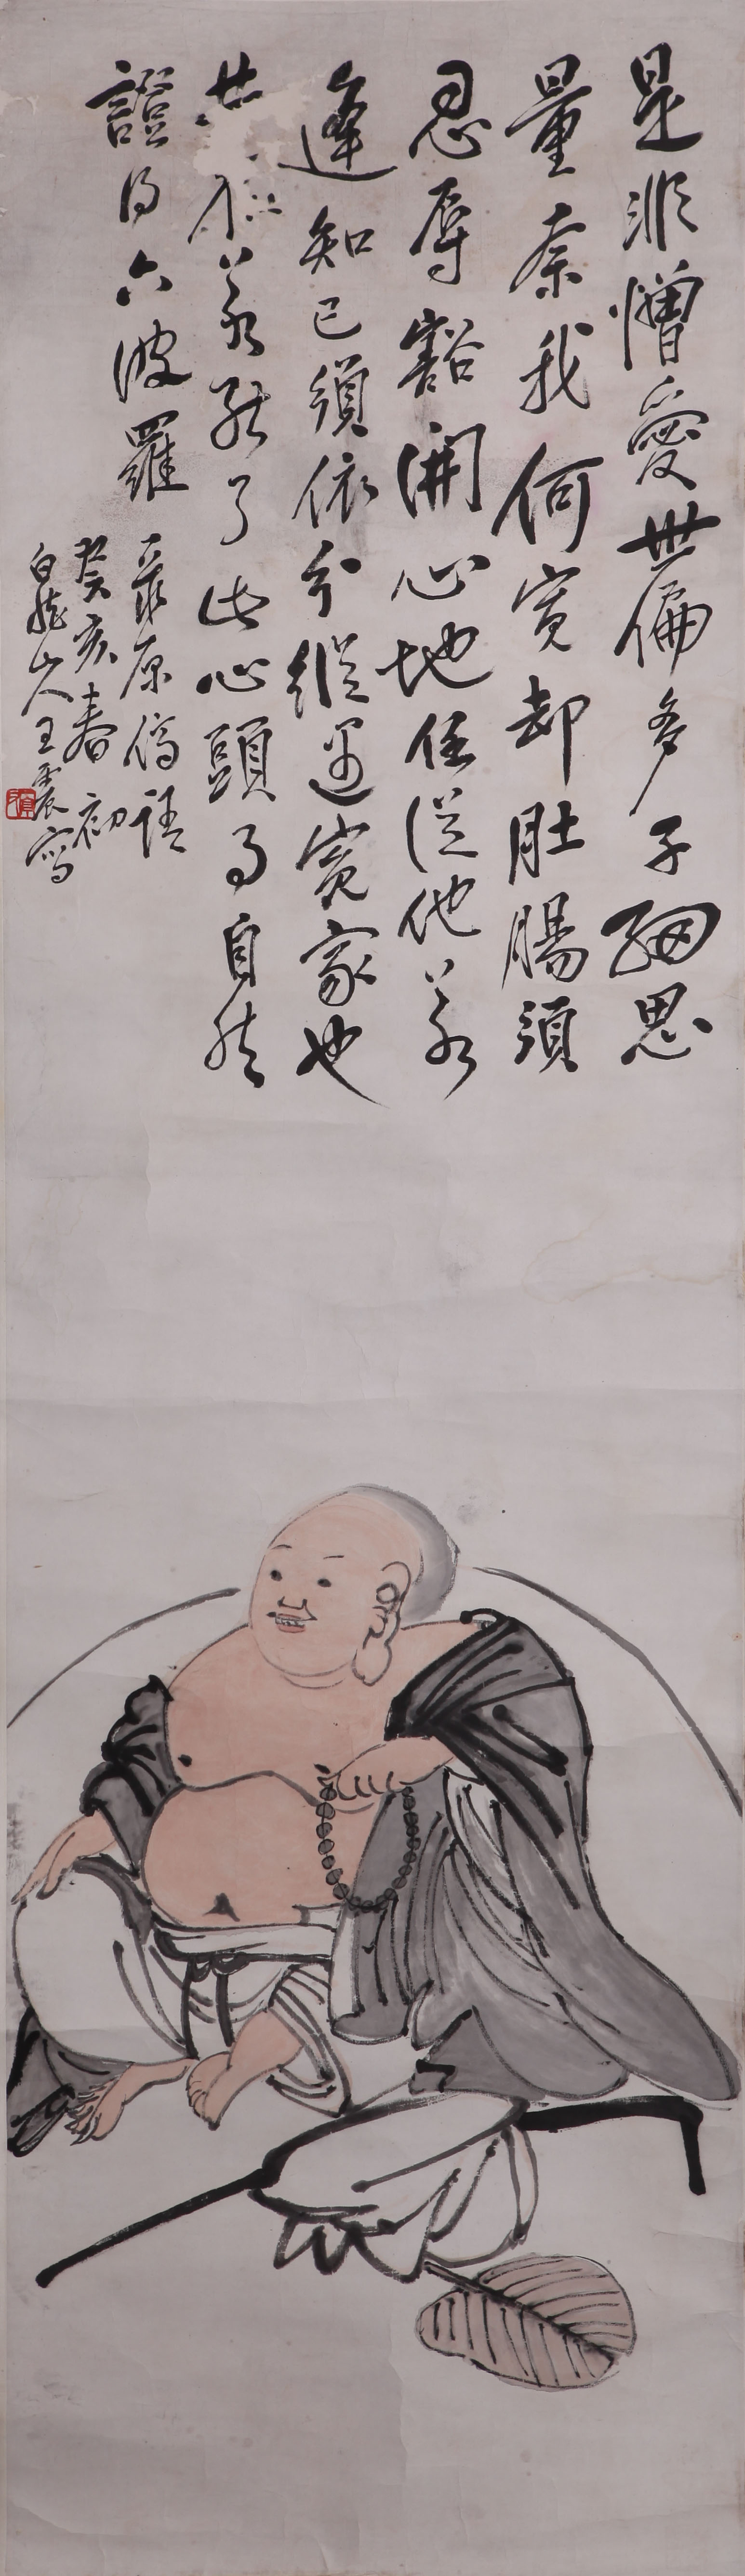 是非憎愛世偏多子細思
量奈我何寬却肚腸須
忍辱豁開心地任從他若
逢知己須依分縱遇寃家也
共和若能了此心頭事自然
證得六波羅
癸亥春初
白龍山人王震寫